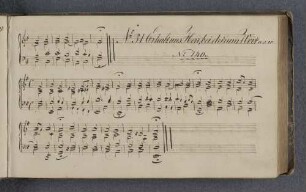 No 31 Erhalt uns Herr, bei deinem Wort
No 140.